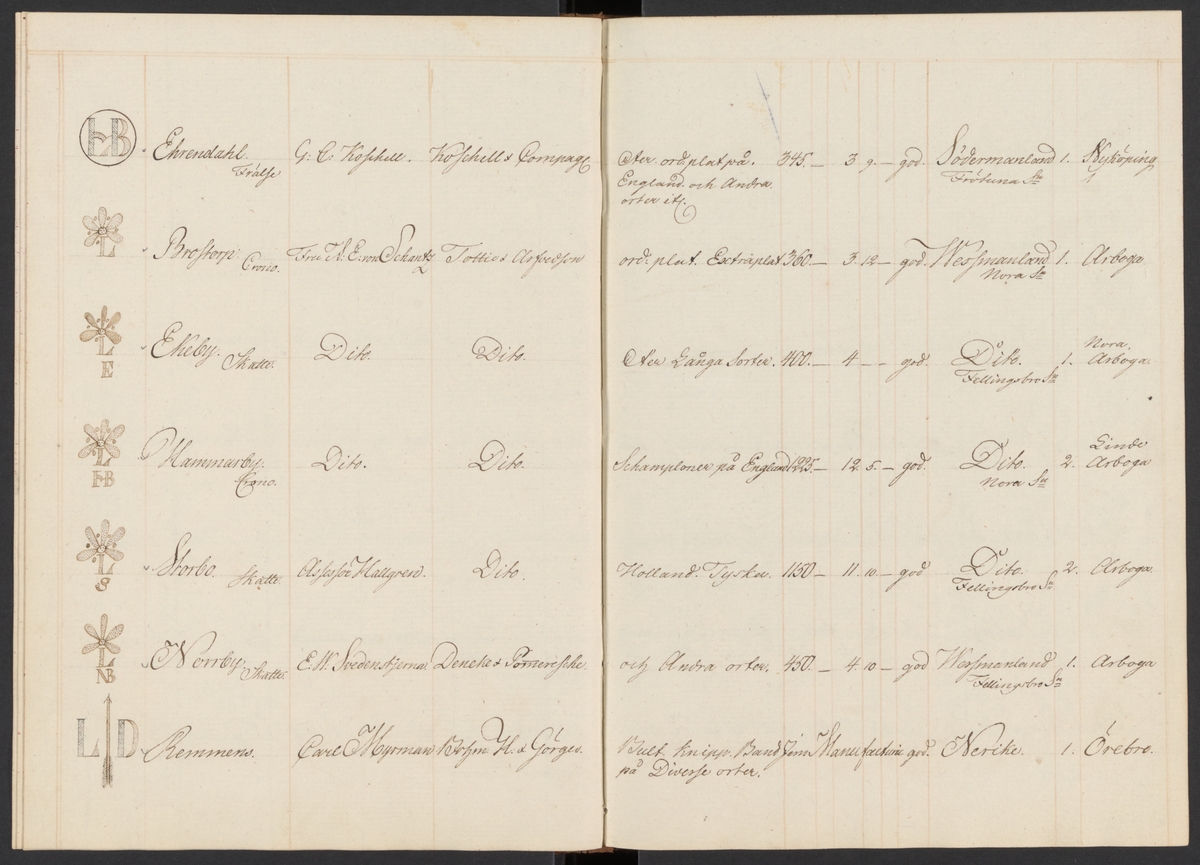 HB Ehrendahl. G: C: Koschell. Koschell & Compag. Åter. ord. plat på. 345.— 3 9.— god. Södermanland 1. Nyköping
Frälse England. och Andra Frötuna Sn
orter etc.
L Brostorp. Fru N. E. von Schantz Tottie & Arfvedson ord: plat. Extra plat 360.— 3. 12— god. Wessmanland 1. Arboga
Crono. Nora Sn
L Ekeby. Skatte. Dito. Dito. Åter Långa Sorter. 400.— 4 — — god. Dito. 1. Nora. Arboga.
E Fellingsbro Sn
L Hammarby. Dito. Dito. Schamploner på England 1225.— 12. 5.— god. Dito. 2. Linde Arboga
HB Crono. Nora Sn
L Storbo. Skatte. Assessor Hallgren. Dito. Holland. Tyska. 1150— 11. 10— god Dito. 2. Arboga
S Fellingsbro Sn
L Norrby. Skatte. E. W. Svedenstjerna. Deneke & Pomeresche. och Andra orter. 450.— 4. 10— god Wessmanland 1. Arboga
NB Fellingsbro Sn
L D Remmens. Carl Myrman Bohm H. & Görges. Bult. Knipp. Band Jern Manufacturie god. Nerike. 1. Örebro.
på Diverse orter.